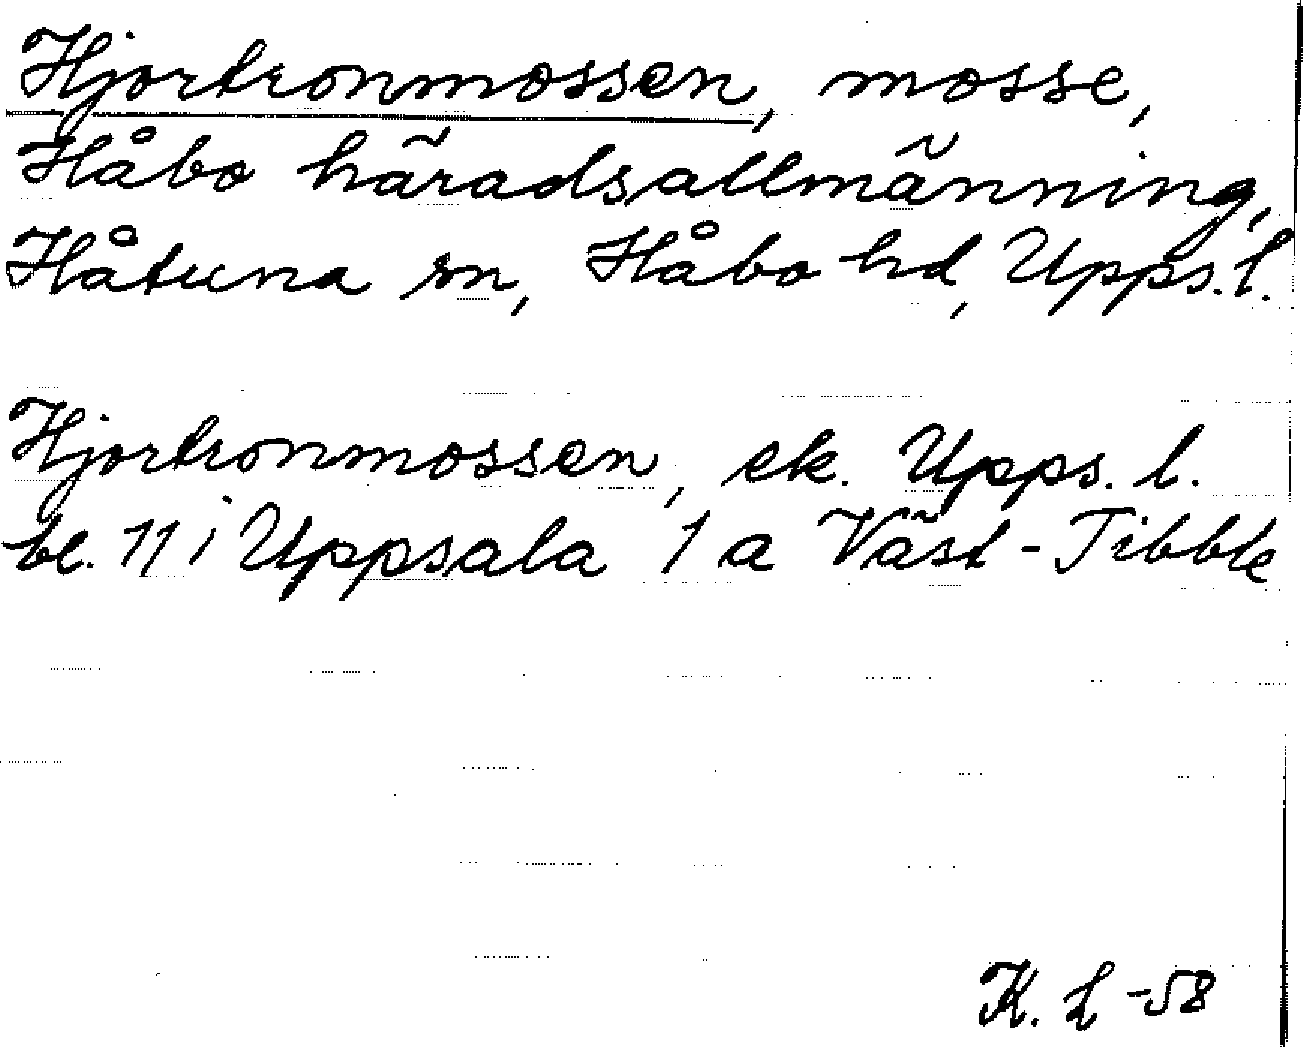 Hjortronmossen, mosse,
Håbo häradsallmänning,
Håtuna sn, Håbo hd, Upps. l.
Hjortronmossen, ek. Upps. l.
bl. 71 i Uppsala 1 a Väst-Tibble
K. L -58